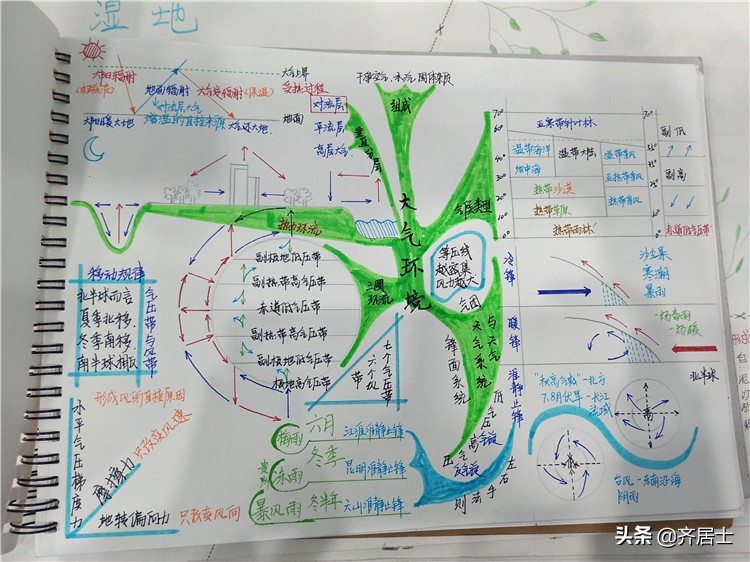 湿地
大气上界
太阳辐射
地面辐射
大气逆辐射(保温)
受热过程
对流层大气
增温的直接来源
太阳暖大地
大气还大地
地面
干洁空气 水汽 固体杂质
组成
对流层
平流层
高层大气
垂直分层
大气环境
气候类型
亚寒带针叶林
温带海洋
温带大陆
温带季风
地中海
亚热带季风
热带沙漠
热带草原
热带季风
热带雨林
70°
60°
40°
30°
70°
副低
副高
赤道低气压带
热力环流
三圈环流
副极地低气压带
副热带高气压带
赤道低气压带
副热带高气压带
副极地低气压带
极地高气压带
移动规律
北半球而言
夏季北移
冬季南移
南半球相反
气压带与风带
七个气压带
六个风带
等压线
越密集
风力越大
气团
与天气
天气系统
锋面系统
冷锋
沙尘暴
寒潮
暴雨
暖锋
一场春雨
一场暖
准静止锋
低气压
高气压
气旋
反气旋
左右手
则
形成风的直接原因
水平气压梯度力
摩擦力
只改变风速
地转偏向力
只改变风向
梅雨
六月
江淮准静止锋
冻雨
冬季
昆明准静止锋
贵
暴风雨
冬半年
天山准静止锋
北半球
"秋高气爽"-北方
7.8月伏旱-长江
流域
高
台风-东南沿海
阴雨
头条 @齐居士